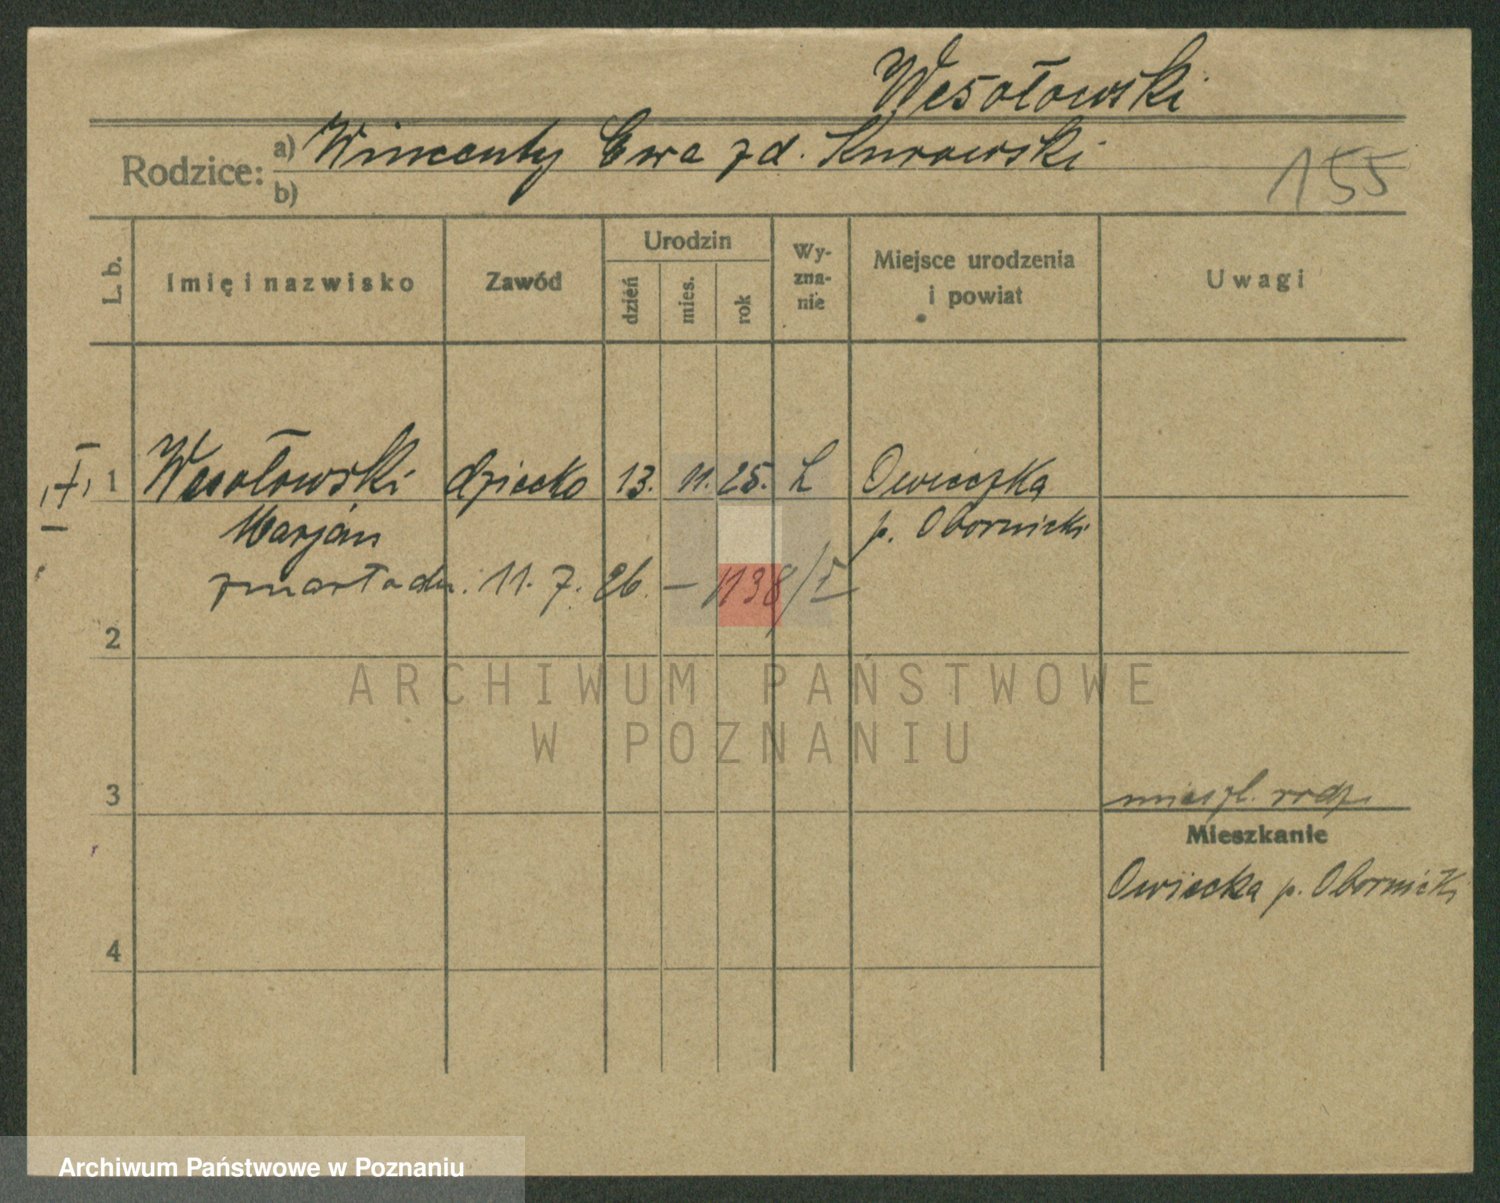 Wesołowski
Rodzice: a) Wincenty Ewa zd. Kurowski
b)
155
L. b.
Imię i nazwisko
Zawód
Urodzin
dzień
mies.
rok
Wy-
zna-
nie
Miejsce urodzenia
i powiat
Uwagi
1 Wesołowski dziecko 13. 11. 25. Owieczka
Marjan p. Obornicki
zmarł a dn. 11. 7. 26. – 1138/I
2
ARCHIWUM PAŃSTWOWE
W POZNANIU
3
Mieszkanie
Owiecka p. Obornicki
4
Archiwum Państwowe w Poznaniu